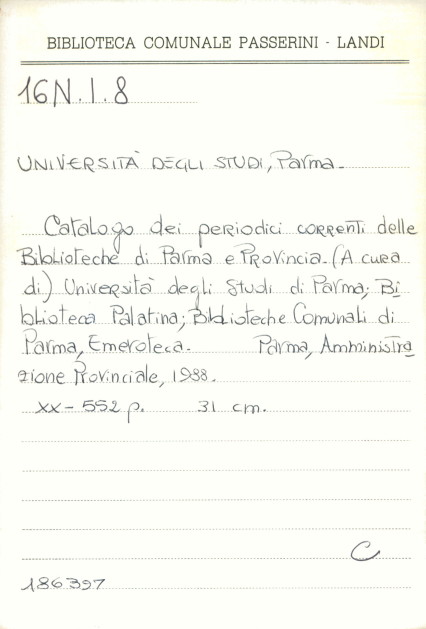 BIBLIOTECA COMUNALE PASSERINI - LANDI
16N.I.8
UNIVERSITÀ DEGLI STUDI, Parma.
Catalogo dei periodici correnti delle
Biblioteche di Parma e Provincia. (A cura
di) Università degli Studi di Parma; Bi
blioteca Palatina; Biblioteche Comunali di
Parma, Emeroteca. Parma, Amministra
zione Provinciale, 1988.
XX - 552 p. 31 cm.
C
186397